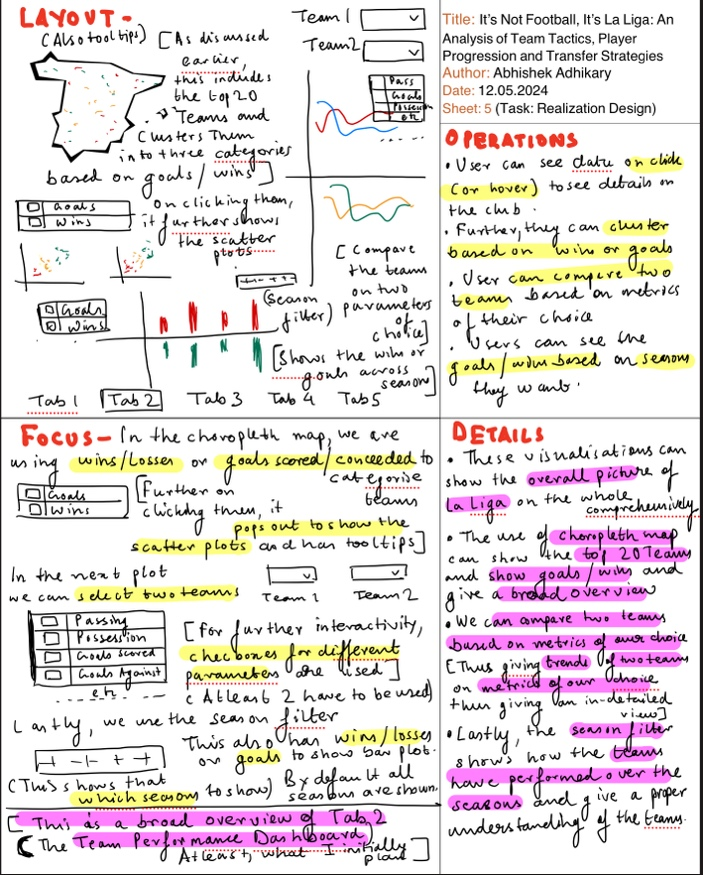 LAYOUT-
(Also tool tips)
[As discussed
earlier,
this includes
the top 20
Teams and
Clusters Them
into three categories
based on goals / wins]
Goals
Wins
on clicking them,
it further shows
the scatter
plots
Goals
Wins
(Season
filter)
[Shows the wins or
goals across
season]
Team 1
Team 2
Pass
Goals
Possession
etc
[Compare
the teams
on two
parameters
of
choice]
Tab 1 Tab 2 Tab 3 Tab 4 Tab 5
Title: It's Not Football, It's La Liga: An
Analysis of Team Tactics, Player
Progression and Transfer Strategies
Author: Abhishek Adhikary
Date: 12.05.2024
Sheet: 5 (Task: Realization Design)
OPERATIONS
• User can see data on click
(or hover) to see details on
the club.
• Further, they can cluster
based on wins or goals
• User can compare two
teams based on metrics
of their choice
• Users can see the
goals/wins based on seasons
they want.
FOCUS- In the choropleth map, we are
using wins/Losses or goals scored/conceeded to
categorise
teams
Goals
Wins
[Further on
clicking them, it
pops out to show the
scatter plots and has tooltips]
In the next plot
we can select two teams
Team 1 Team 2
Passing
Possession
Goals Scored
Goals Against
etc
[For further interactivity,
checboxes for different
parameters are used]
(Atleast 2 have to be used)
Lastly, we use the season filter
This also has wins/losses
or goals to show bar plot.
(This shows that
which season to show)
By default all
seasons are shown.
[This is a broad overview of Tab 2
(The Team Performance Dashboard)
Atleast, what I initially
plan]
DETAILS
• These visualisations can
show the overall picture of
La Liga on the whole
comprehensively
• The use of choropleth map
can show the top 20 Teams
and show goals/wins and
give a broad overview
• We can compare two teams
based on metrics of our choice
[Thus giving trends of two teams
on metrics of our choice
thus giving an in-detailed
view]
• Lastly, the season filter
shows how the teams
have performed over the
seasons and give a proper
understanding of the teams.